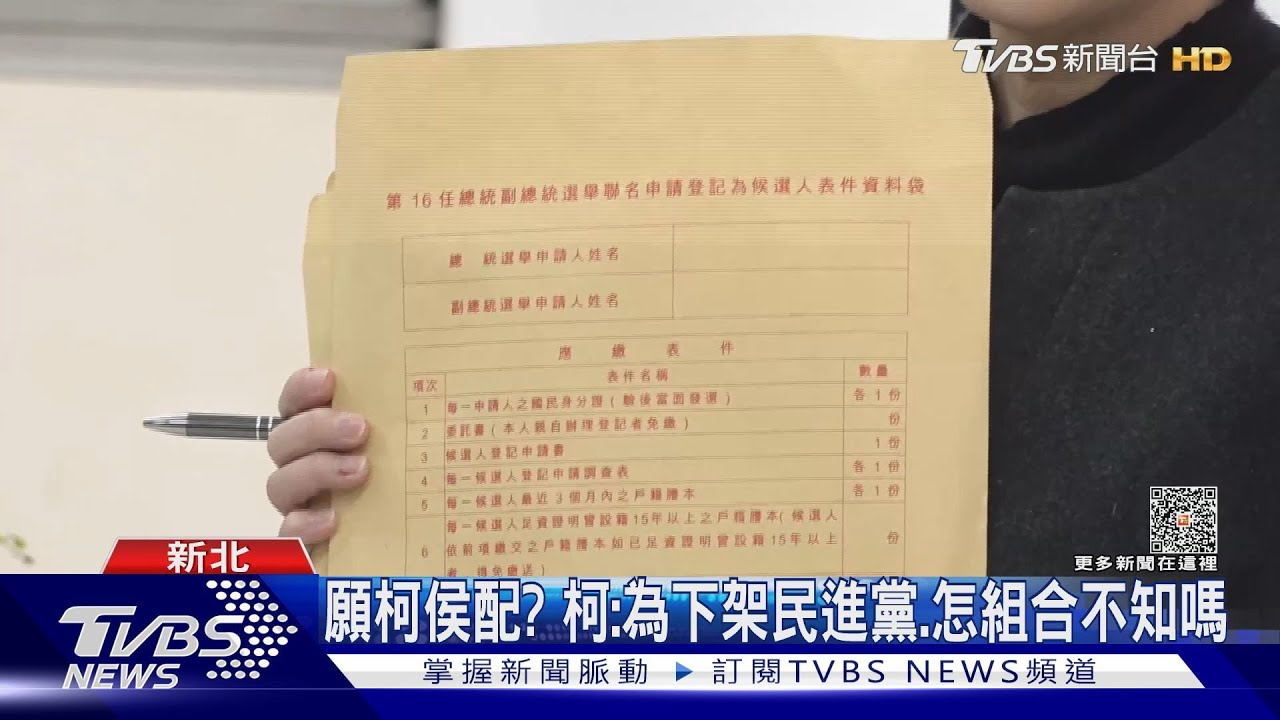 TVBS新聞台 HD
第 16 任總統副總統選舉聯名申請登記為候選人表件資料袋
總 統選舉申請人姓名
副總統選舉申請人姓名
應 繳 表 件
項次 表件名稱 數量
1 每一申請人之國民身分證(驗後當面發還) 各 1 份
2 委託書(本人親自辦理登記者免繳) 份
3 候選人登記申請書 1 份
4 每一候選人登記申請調查表 各 1 份
5 每一候選人最近 3 個月內之戶籍謄本 各 1 份
每一候選人足資證明曾設籍15年以上之戶籍謄本(候選人
6 依前項繳交之戶籍謄本如已足資證明曾設籍15年以上 份
者 得免繳送)
更多新聞在這裡
新北
TVBS NEWS
願柯侯配? 柯:為下架民進黨.怎組合不知嗎
掌握新聞脈動 ▶ 訂閱TVBS NEWS頻道